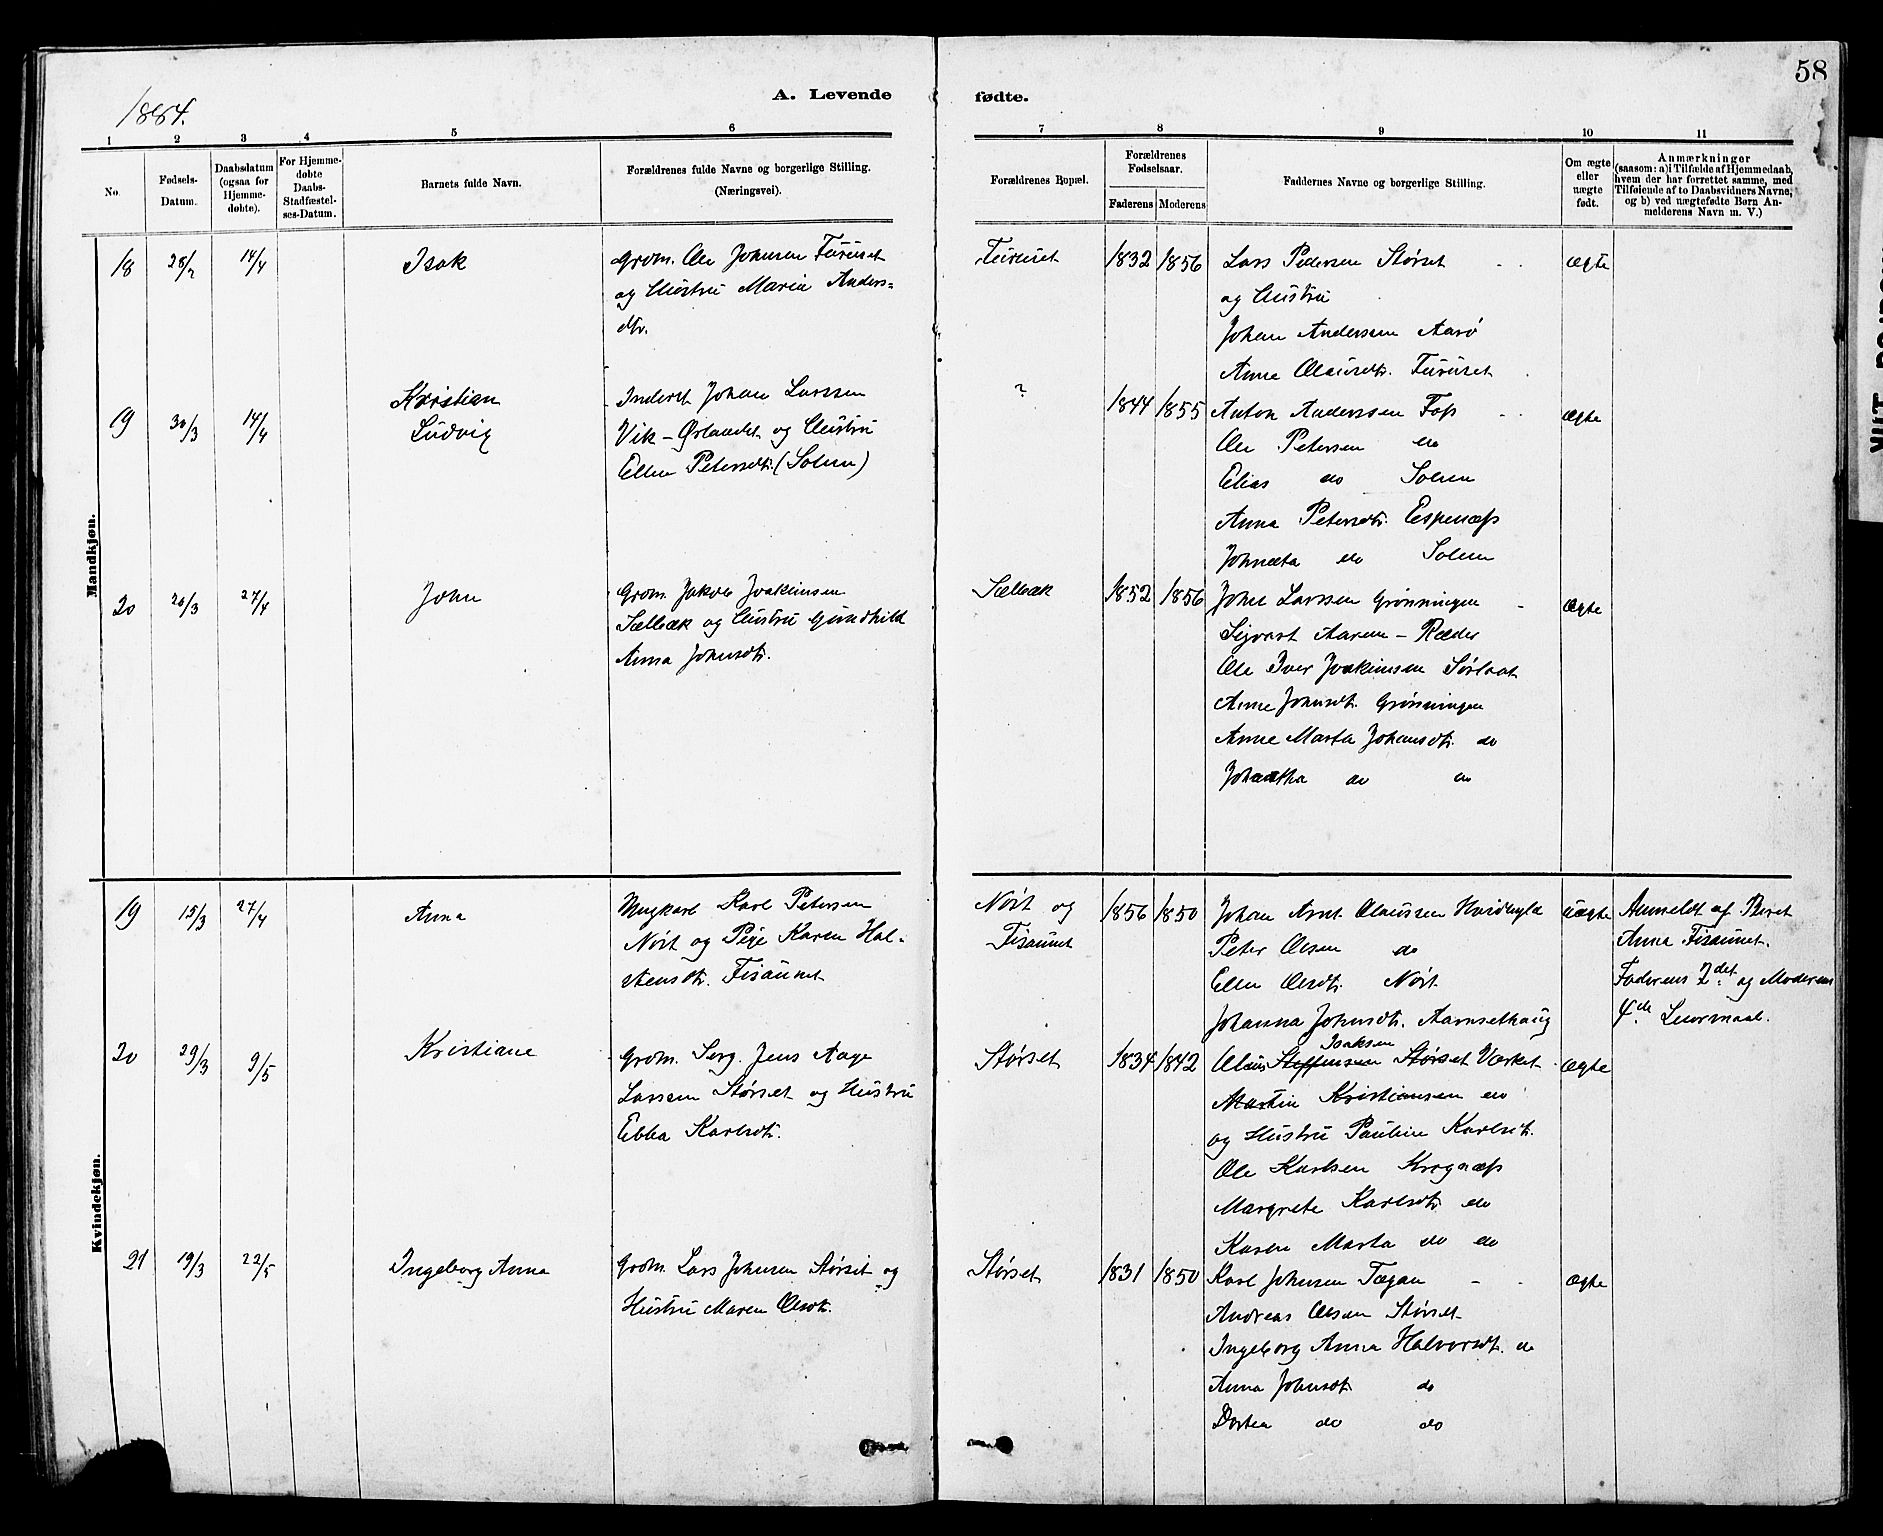 58
1884.
A. Levende
fødte.
1 2 3 4 5 6 7 8 9 10 11
No.
Fødsels-
Datum.
Daabsdatum
(ogsaa for
Hjemme-
døbte).
For Hjemme-
døbte
Daabs-
Stadfæstel-
ses-Datum.
Barnets fulde Navn.
Forældrenes fulde Navne og borgerlige Stilling.
(Næringsvei).
Forældrenes Bopæl.
Forældrenes
Fødselsaar.
Faderens Moderens
Faddernes Navne og borgerlige Stilling.
Om ægte
eller
uægte
født.
Anmærkninger
(saasom: a) i Tilfælde af Hjemmedaab,
hvem der har forrettet samme, med
Tilføiende af to Daabsvidners Navne,
og b) ved uægtefødte Børn An-
melderens Navn m. V.)
Mandkjøn.
18 28/2 14/4 Isak
Grdm. Ole Johnsen Furuset
og Hustru Maria Anders-
dtr.
Furuset 1832 1856
Lars Pedersen Størset
og Hustru
Johan Andersen Aarø
Anne Olausdtr. Furuset
ægte
19 30/3 14/4 Kristian
Ludvig
Inderst Johan Larssen
Vik - Ørlandet og Hustru
Ellen Petersdtr. (Solem)
? 1844 1855
Anton Andersen Foss
Ole Petersen do
Elias do Solem
Anna Petersdtr. Espenæss
Johnæta do Solem
ægte
20 20/3 27/4 John
Grdm. Jakob Joakimsen
Sælbæk og Hustru Gundhild
Anna Johnsdtr.
Sælbæk 1852 1856
John Larssen Grønningen
Sigvart Aarem - Ræder
Ole Iver Joakimsen Sørlaat
Anne Johnsdtr. Grønningen
Anne Marta Johansdtr. do
Johætha do do
ægte
Kvindekjøn.
19 15/3 27/4 Anna
Ungkarl Karl Petersen
Nört og Pige Karen Hal-
stensdtr. Fisaunet
Nört og
Fisaunet
1856 1850
Johan Arnt Olaussen Hardbygld
Peter Olsen do
Ellen Olsdtr. Nört
Johanna Johnsdtr. Aarnsethaug
uægte
Anmeldt af Beret
Anna Fisaunet.
Faderens 2det og Moderens
4de Leiermaal.
20 29/3 9/5 Kristiane
Grdm. Serg. Jens Aage
Larssen Størset og Hustru
Ebba Karlsdtr.
Størset 1834 1842
Isaksen
Olaus Steffensen Størset Værket
Martin Kristiansen do
og Hustru Pauline Karlsdtr.
Ole Karlsen Krognæss
Margrete Karlsdtr. do
Karen Marta do do
ægte
21 19/3 22/5 Ingeborg Anna
Grdm. Lars Johnsen Størset og
Hustru Maren Olsdtr.
Størset 1831 1850
Karl Johnsen Tægan
Andreas Olsen Størset
Ingeborg Anna Halvorsdtr. do
Anna Johnsdtr. do
Dortea do do
ægte